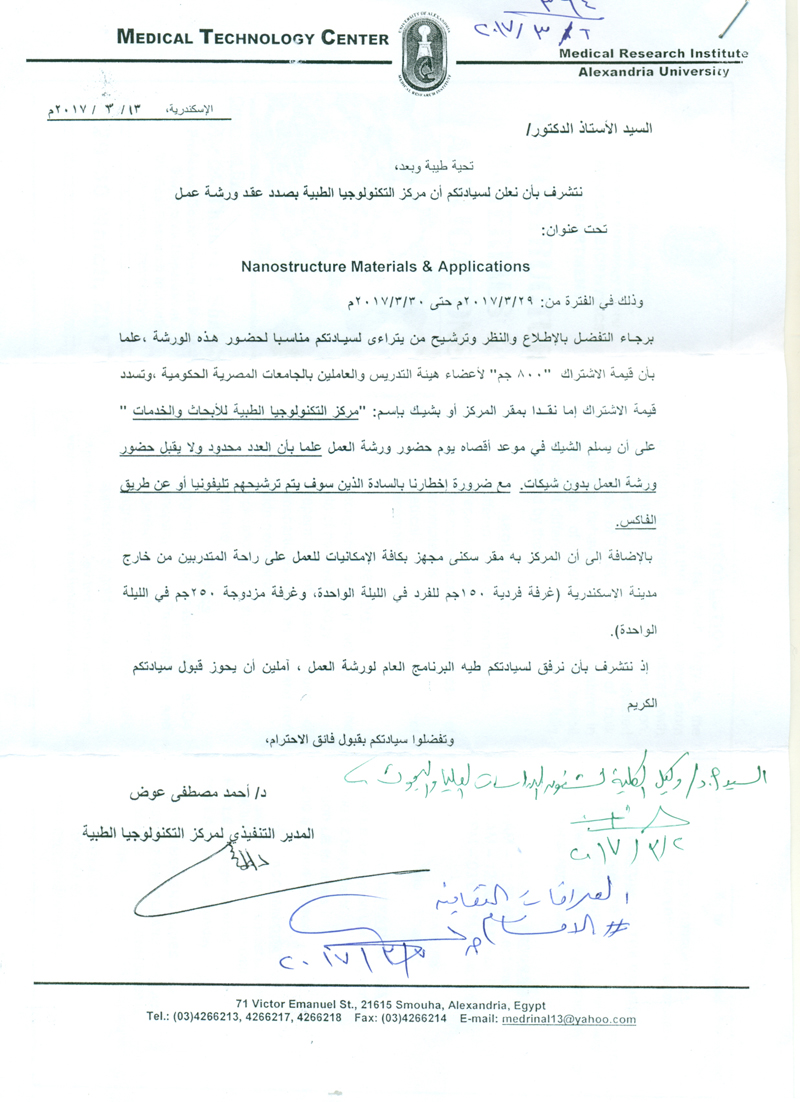 ٣٦٤
٢٠١٧/٣/٢
MEDICAL TECHNOLOGY CENTER
UNIVERSITY OF ALEXANDRIA
MEDICAL RESEARCH INSTITUTE
Medical Research Institute
Alexandria University
الإسكندرية، ١٣/ ٣ / ٢٠١٧م
السيد الأستاذ الدكتور/
تحية طيبة وبعد،
نتشرف بأن نعلن لسيادتكم أن مركز التكنولوجيا الطبية بصدد عقد ورشة عمل
تحت عنوان:
Nanostructure Materials & Applications
وذلك في الفترة من: ٢٠١٧/٣/٢٩م حتى ٢٠١٧/٣/٣٠م
برجاء التفضل بالإطلاع والنظر وترشيح من يتراءى لسيادتكم مناسبا لحضور هذه الورشة ،علما
بأن قيمة الاشتراك "٨٠٠ جم" لأعضاء هيئة التدريس والعاملين بالجامعات المصرية الحكومية ،وتسدد
قيمة الاشتراك إما نقدا بمقر المركز أو بشيك بإسم: "مركز التكنولوجيا الطبية للأبحاث والخدمات "
على أن يسلم الشيك في موعد أقصاه يوم حضور ورشة العمل علما بأن العدد محدود ولا يقبل حضور
ورشة العمل بدون شيكات. مع ضرورة إخطارنا بالسادة الذين سوف يتم ترشيحهم تليفونيا أو عن طريق
الفاكس.
بالإضافة الى أن المركز به مقر سكنى مجهز بكافة الإمكانيات للعمل على راحة المتدربين من خارج
مدينة الاسكندرية (غرفة فردية ١٥٠جم للفرد في الليلة الواحدة، وغرفة مزدوجة ٢٥٠جم في الليلة
الواحدة).
إذ نتشرف بأن نرفق لسيادتكم طيه البرنامج العام لورشة العمل ، آملين أن يحوز قبول سيادتكم
الكريم
وتفضلوا سيادتكم بقبول فائق الاحترام،
السيد أ.د/ وكيل الكلية لشئون الدراسات العليا والبحوث
د/ أحمد مصطفى عوض
المدير التنفيذي لمركز التكنولوجيا الطبية
٢٠١٧/٣/٢
العلاقات الثقافية
# الاقسام
71 Victor Emanuel St., 21615 Smouha, Alexandria, Egypt
Tel.: (03)4266213, 4266217, 4266218 Fax: (03)4266214 E-mail: medrinal13@yahoo.com